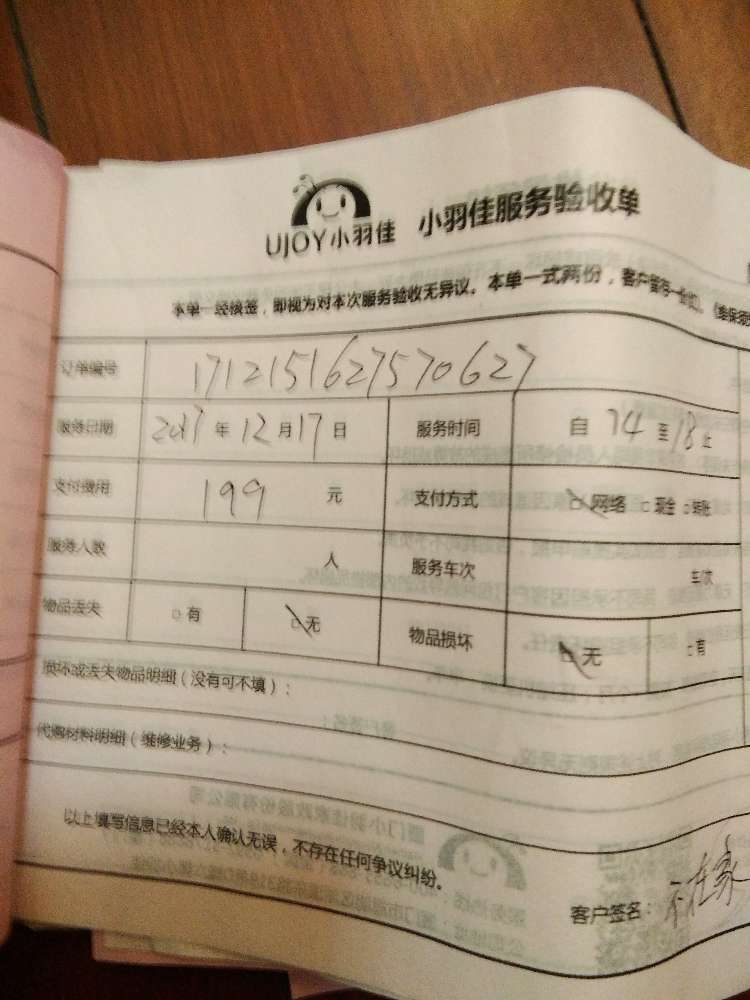 UJOY小羽佳 小羽佳服务验收单
本单一经核签，即视为对本次服务验收无异议。本单一式两份，客户留存一份
订单编号 1712151627570627
服务日期 2017 年 12 月 17 日 服务时间 自 14 至 18 止
支付费用 199 元 支付方式 网络 □现金 □转账
服务人数 人 服务车次 车/次
物品丢失 □有 □无 物品损坏 □无 □有
损坏或丢失物品明细（没有可不填）：
代购材料明细（维修业务）：
以上填写信息已经本人确认无误，不存在任何争议纠纷。
客户签名： 不在家